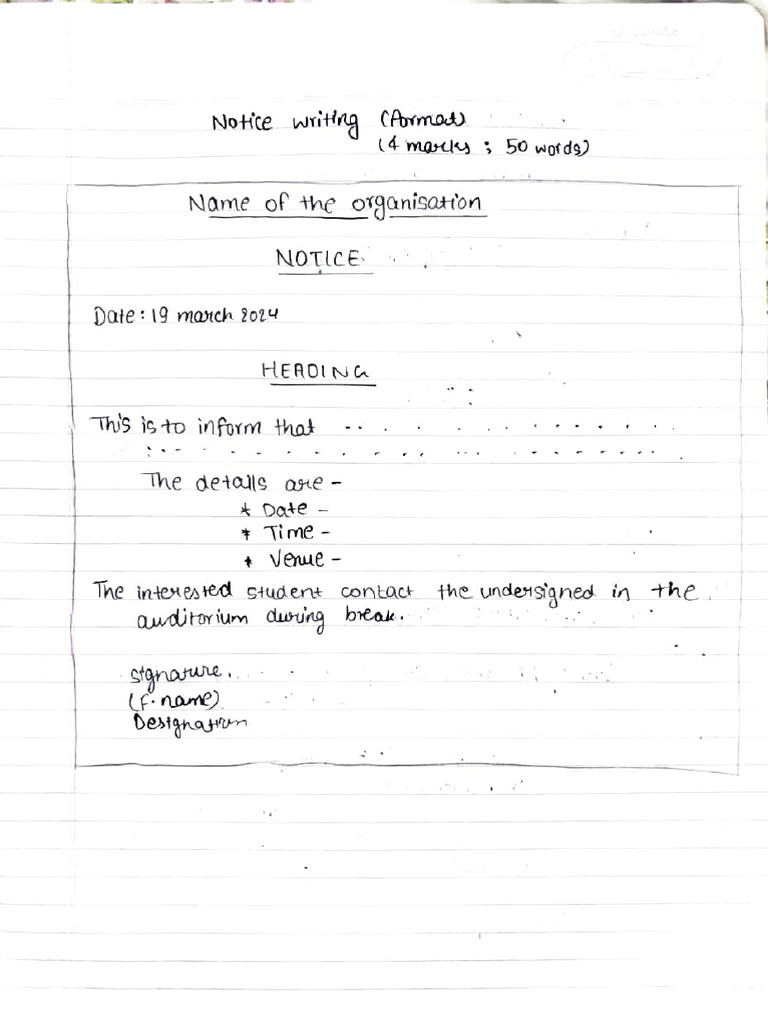 Notice writing (format)
(4 marks ; 50 words)
Name of the organisation
NOTICE
Date : 19 march 2024
HEADING
This is to inform that .. . . . . . . . . . . .
. . . . . . . . . . . . . . . . . .
The details are -
* Date -
* Time -
* Venue -
The interested student contact the undersigned in the
auditorium during break.
signature.
(F. name)
Designation